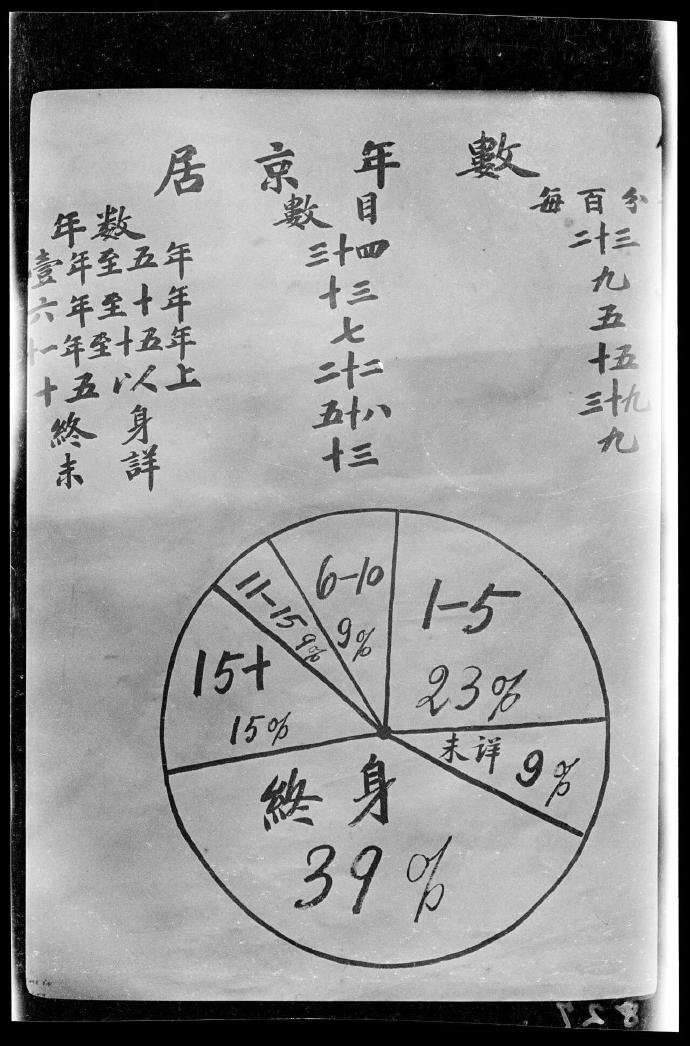 居京年數
年数 數目 每百分
壹年至五年 三十四 二十三
六年至十年 十三 九
十一年至十五年 七 五
十五年以上 二十二 十五
終身 五十八 三十九
未詳 十三 九
6-10
9%
1-5
23%
11-15
15+
15%
未詳 9%
終身
39%
827